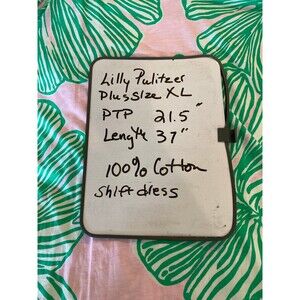 Lilly Pulitzer
Plus size XL
PTP 21.5"
Length 37"
100% Cotton
shift dress